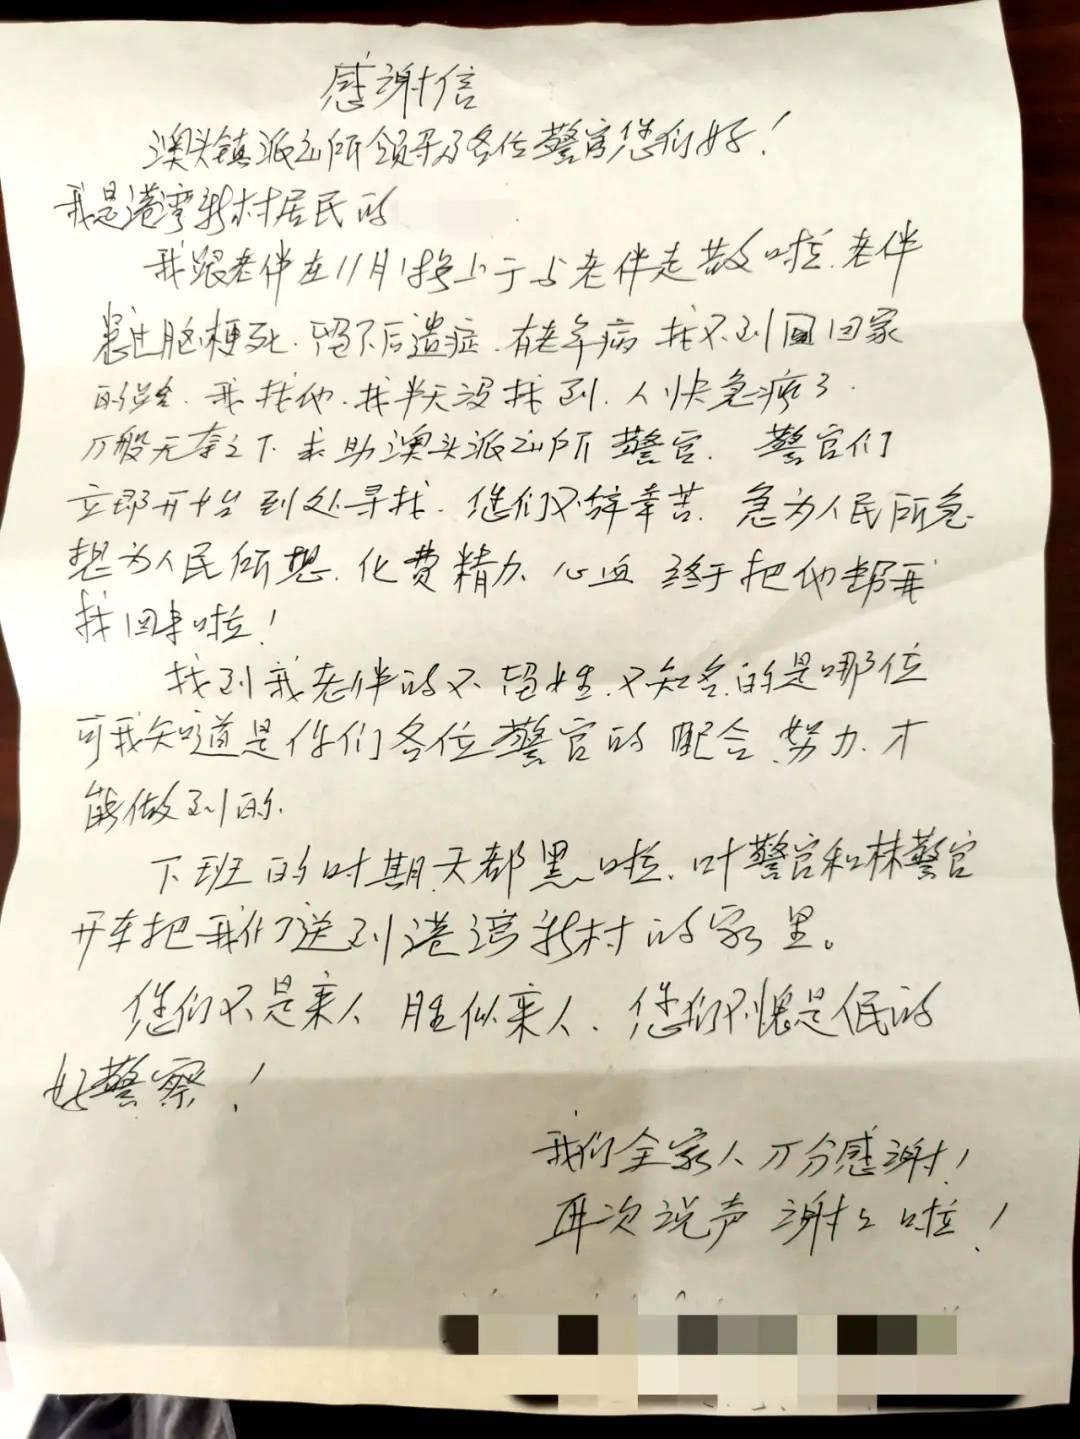 感谢信
澳头镇派出所领导及各位警官您们好！
我是港湾新村居民的
我跟老伴在11月1晚上于与老伴走散啦.老伴
患过脑梗死.留下后遗症.有老年病 找不到回家
的路.我找他.找半天没找到.人快急疼了.
万般无奈之下.求助澳头派出所 警官. 警官们
立即开始到处寻找.您们不辞幸苦.急为人民所急.
想为人民所想.化费精力.心血 终于把他帮我
找回来啦！
找到我老伴的不留姓.不知名.的是哪位
可我知道是你们各位警官的 配合.努力.才
能做到的.
下班的时期.天都黑啦.叶警官和林警官
开车把我们送到港湾新村的家里。
您们不是亲人 胜似亲人.您们不愧是人民的
好警察！
我们全家人万分感谢！
再次说声 谢谢啦！